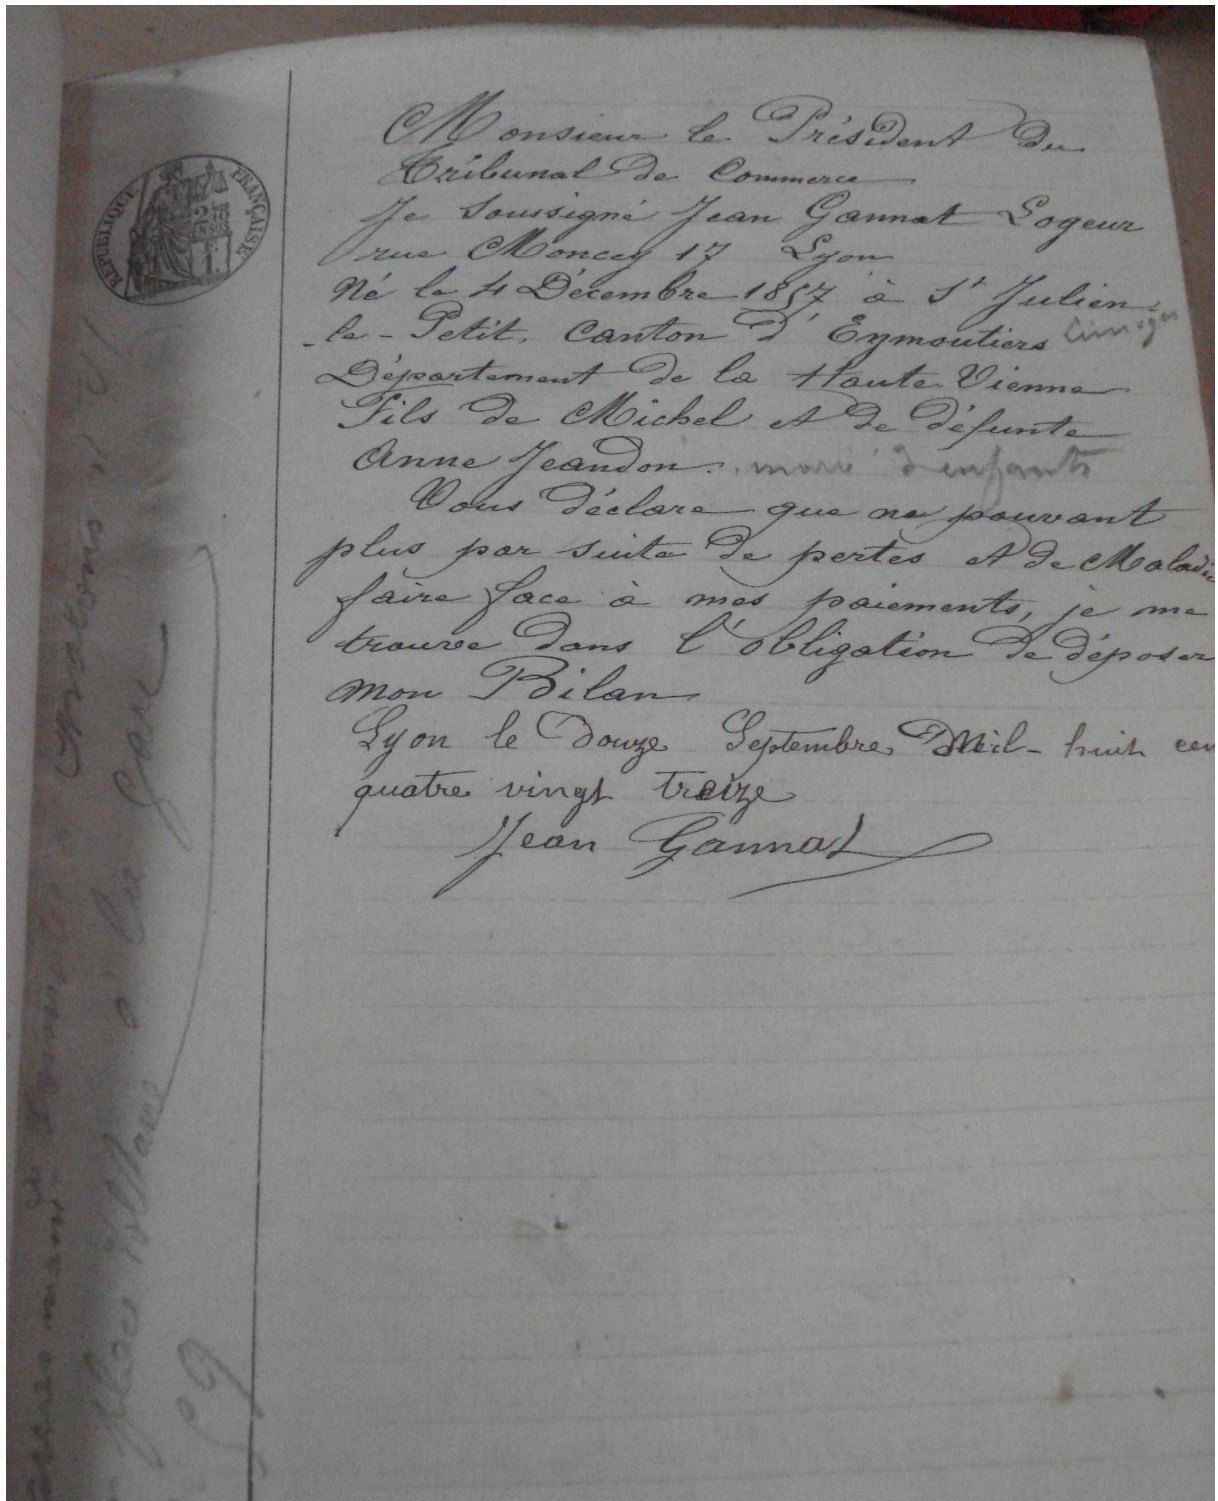 RÉPUBLIQUE FRANÇAISE
Monsieur le Président du
Tribunal de Commerce
Je Soussigné Jean Gannat Logeur
rue Moncey 17 Lyon
Né le 4 Décembre 1857 à St Julien
-le-Petit, Canton d'Eymoutiers Limoges
Département de la Haute Vienne
Fils de Michel et de défunte
Anne Jeandon. marié d enfants
Vous déclare que ne pouvant
plus par suite de pertes et de Maladie
faire face à mes paiements, je me
trouve dans l'obligation de déposer
mon Bilan
Lyon le douze Septembre Mil-huit cen
quatre vingt treize
Jean Gannat
à la Gare
place Voltaire
59